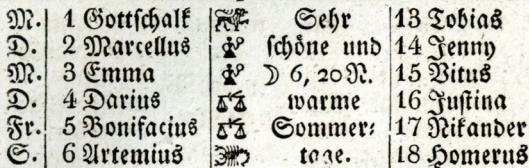 M. 1 Gottschalk Sehr 13 Tobias
D. 2 Marcellus schöne und 14 Jenny
M. 3 Emma ☽ 6, 20 N. 15 Vitus
D. 4 Darius warme 16 Justina
Fr. 5 Bonifacius Sommer- 17 Nikander
S. 6 Artemius tage. 18 Homerus